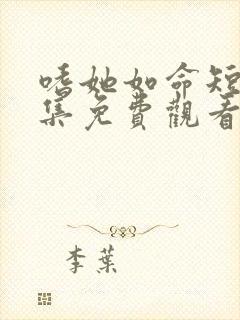 嗜她如命短
集免費觀看
李葉